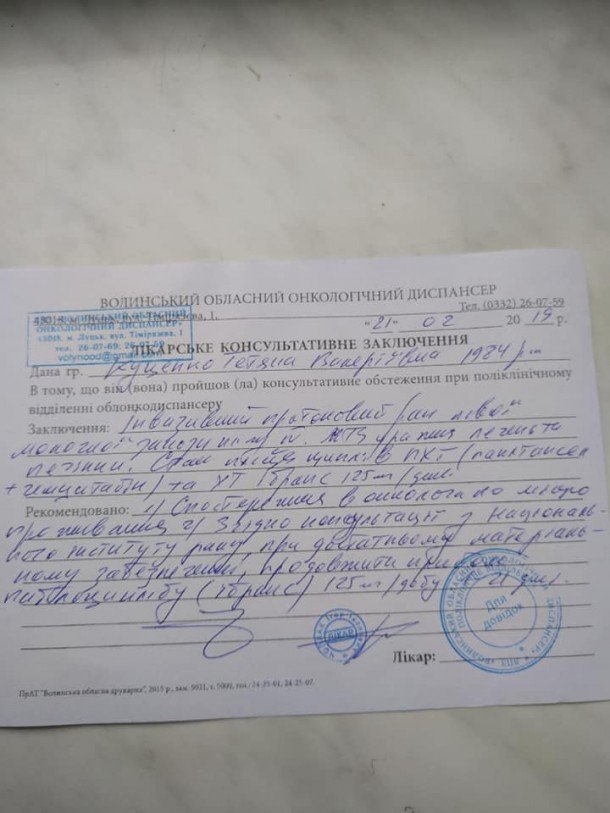 ВОЛИНСЬКИЙ ОБЛАСНИЙ ОНКОЛОГІЧНИЙ ДИСПАНСЕР
Тел. (0332) 26-07-59
ОНКОЛОГІЧНИЙ ДИСПАНСЕР»
43018, м. Луцьк, вул. Тімірязєва, 1
тел. 26-07-69, 26-07-59
"21" 02 2019 р.
ЛІКАРСЬКЕ КОНСУЛЬТАТИВНЕ ЗАКЛЮЧЕННЯ
Дана гр. Куценко Тетяна Валеріївна 1984 р.н
В тому, що він (вона) пройшов (ла) консультативне обстеження при поліклінічному
відділенні облонкодиспансеру
Заключення: Інвазивний протоковий рак лівої
молочної залози МТЗ ураження
печінки. Стан після циклів ПХТ (паклітаксел
+ гемцитабін) та ХТ Ібранс 125 мг/день.
Рекомендовано: 1) Спостереження в онколога по місцю
проживання 2) Згідно консультації з Національ-
ного інституту раку, при достатньому матеріаль-
ному забезпеченні, продовжити прийом
палбоциклібу (Ібранс) 125 мг/добу 21 день.
ЛІКАР
Для
довідок
Лікар:
ПрАТ "Волинська обласна друкарня", 2015 р., зам. 5021, т. 5000, тел.: 24-25-01, 24-25-07.